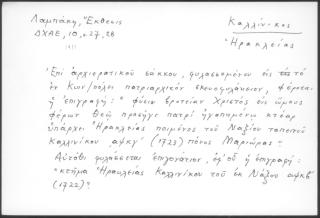 Λαμπάκη, Ἔκθεσις
ΔΧΑΕ, 10, 27, 28
1911
Καλλίνικος
Ἡρακλείας
Ἐπὶ ἀρχιερατικοῦ σάκκου, φυλασσομένου εἰς τὸ
ἐν Κων/πόλει πατριαρχικὸν σκευοφυλάκιον, φέρεται
ἡ ἐπιγραφή: " φύσιν βροτείαν Χριστὸς εἰς ὤμους
φέρων Θεῷ προσῆγε πατρὶ ἠγαπημένῳ κτέαρ
ὑπάρχει Ἡρακλείας ποιμένος τοῦ Ναξίου ταπεινοῦ
Καλλινίκου αψκγ´ (1723) πόνος Μαριώρας"
Αὐτόθι φυλάσσεται ἐπιγονάτιον, ἐφ' οὗ ἡ ἐπιγραφή:
"κτῆμα Ἡρακλείας Καλλινίκου τοῦ ἐκ Νάξου αψκβ´
(1722)"